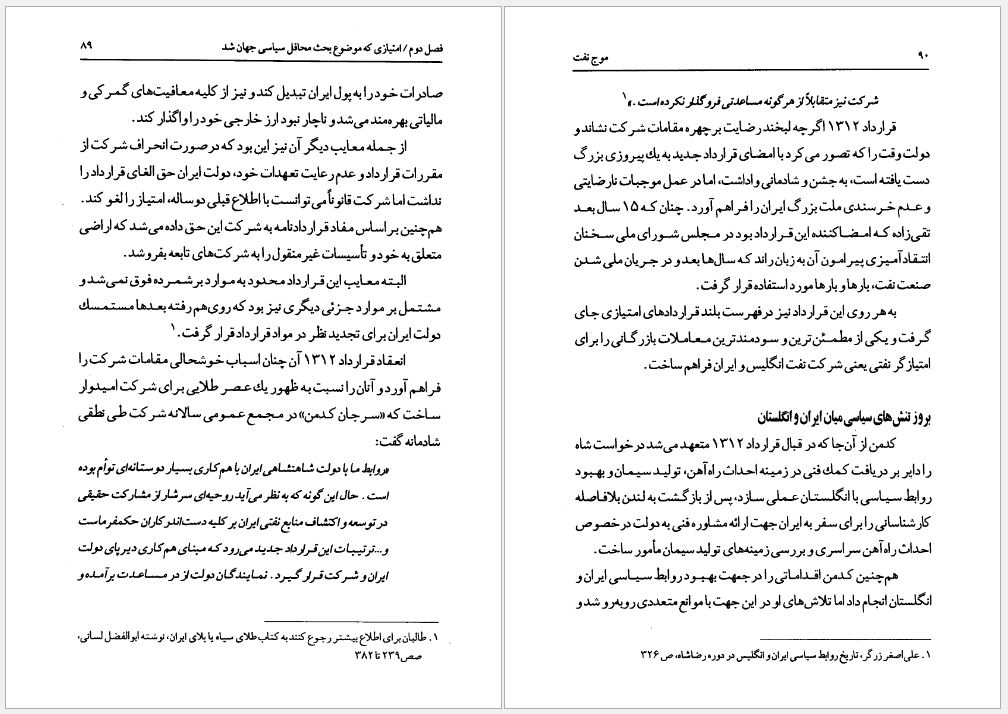 فصل دوم / امتیازی که موضوع بحث محافل سیاسی جهان شد ۸۹
صادرات خود را به پول ایران تبدیل کند و نیز از کلیه معافیت‌های گمرکی و
مالیاتی بهره‌مند می‌شد و ناچار نبود ارز خارجی خود را واگذار کند.
از جمله معایب دیگر آن نیز این بود که در صورت انحراف شرکت از
مقررات قرارداد و عدم رعایت تعهدات خود، دولت ایران حق الغای قرارداد را
نداشت اما شرکت قانوناً می‌توانست با اطلاع قبلی دو ساله، امتیاز را لغو کند.
هم‌چنین بر اساس مفاد قراردادنامه به شرکت این حق داده می‌شد که اراضی
متعلق به خود و تأسیسات غیر منقول را به شرکت‌های تابعه بفروشد.
البته معایب این قرارداد محدود به موارد بر شمرده فوق نمی‌شد و
مشتمل بر موارد جزئی دیگری نیز بود که روی‌هم رفته بعدها مستمسک
دولت ایران برای تجدید نظر در مواد قرارداد قرار گرفت.۱
انعقاد قرارداد ۱۳۱۲ آن چنان اسباب خوشحالی مقامات شرکت را
فراهم آورد و آنان را نسبت به ظهور یك عصر طلایی برای شرکت امیدوار
ساخت که «سرجان کدمن» در مجمع عمومی سالانه شرکت طی نطقی
شادمانه گفت:
«روابط ما با دولت شاهنشاهی ایران با هم‌کاری بسیار دوستانه‌ای توأم بوده
است. حال این گونه که به نظر می‌آید روحیه‌ای سرشار از مشارکت حقیقی
در توسعه و اکتشاف منابع نفتی ایران بر کلیه دست‌اندرکاران حکمفرماست
و...ترتیبات این قرارداد جدید می‌رود که مبنای هم‌کاری دیرپای دولت
ایران و شرکت قرار گیرد. نمایندگان دولت از در مساعدت برآمده و
۱. طالبان برای اطلاع بیشتر رجوع کنند به کتاب طلای سیاه یا بلای ایران، نوشته ابوالفضل لسانی،
صص ۲۳۹ تا ۳۸۲
۹۰ موج نفت
شرکت نیز متقابلاً از هرگونه مساعدتی فروگذار نکرده است.»۱
قرارداد ۱۳۱۲ اگر چه لبخند رضایت بر چهره مقامات شرکت نشاند و
دولت وقت را که تصور می‌کرد با امضای قرارداد جدید به یك پیروزی بزرگ
دست یافته است، به جشن و شادمانی واداشت، اما در عمل موجبات نارضایتی
و عدم خرسندی ملت بزرگ ایران را فراهم آورد. چنان که ۱۵ سال بعد
تقی‌زاده که امضاکننده این قرارداد بود در مجلس شورای ملی سخنان
انتقادآمیزی پیرامون آن به زبان راند که سال‌ها بعد و در جریان ملی شدن
صنعت نفت، بارها و بارها مورد استفاده قرار گرفت.
به هر روی این قرارداد نیز در فهرست بلند قراردادهای امتیازی جای
گرفت و یکی از مطمئن‌ترین و سودمندترین معاملات بازرگانی را برای
امتیازگر نفتی یعنی شرکت نفت انگلیس و ایران فراهم ساخت.
بروز تنش‌های سیاسی میان ایران و انگلستان
کدمن از آن‌جا که در قبال قرارداد ۱۳۱۲ متعهد می‌شد درخواست شاه
را دایر بر دریافت کمك فنی در زمینه احداث راه‌آهن، تولید سیمان و بهبود
روابط سیاسی با انگلستان عملی سازد، پس از بازگشت به لندن بلافاصله
کارشناسانی را برای سفر به ایران جهت ارائه مشاوره فنی به دولت در خصوص
احداث راه‌آهن سراسری و بررسی زمینه‌های تولید سیمان مأمور ساخت.
هم‌چنین کدمن اقداماتی را در جهت بهبود روابط سیاسی ایران و
انگلستان انجام داد اما تلاش‌های او در این جهت با موانع متعددی روبه‌رو شد و
۱. علی‌اصغر زرگر، تاریخ روابط سیاسی ایران و انگلیس در دوره رضاشاه، ص ۳۲۶